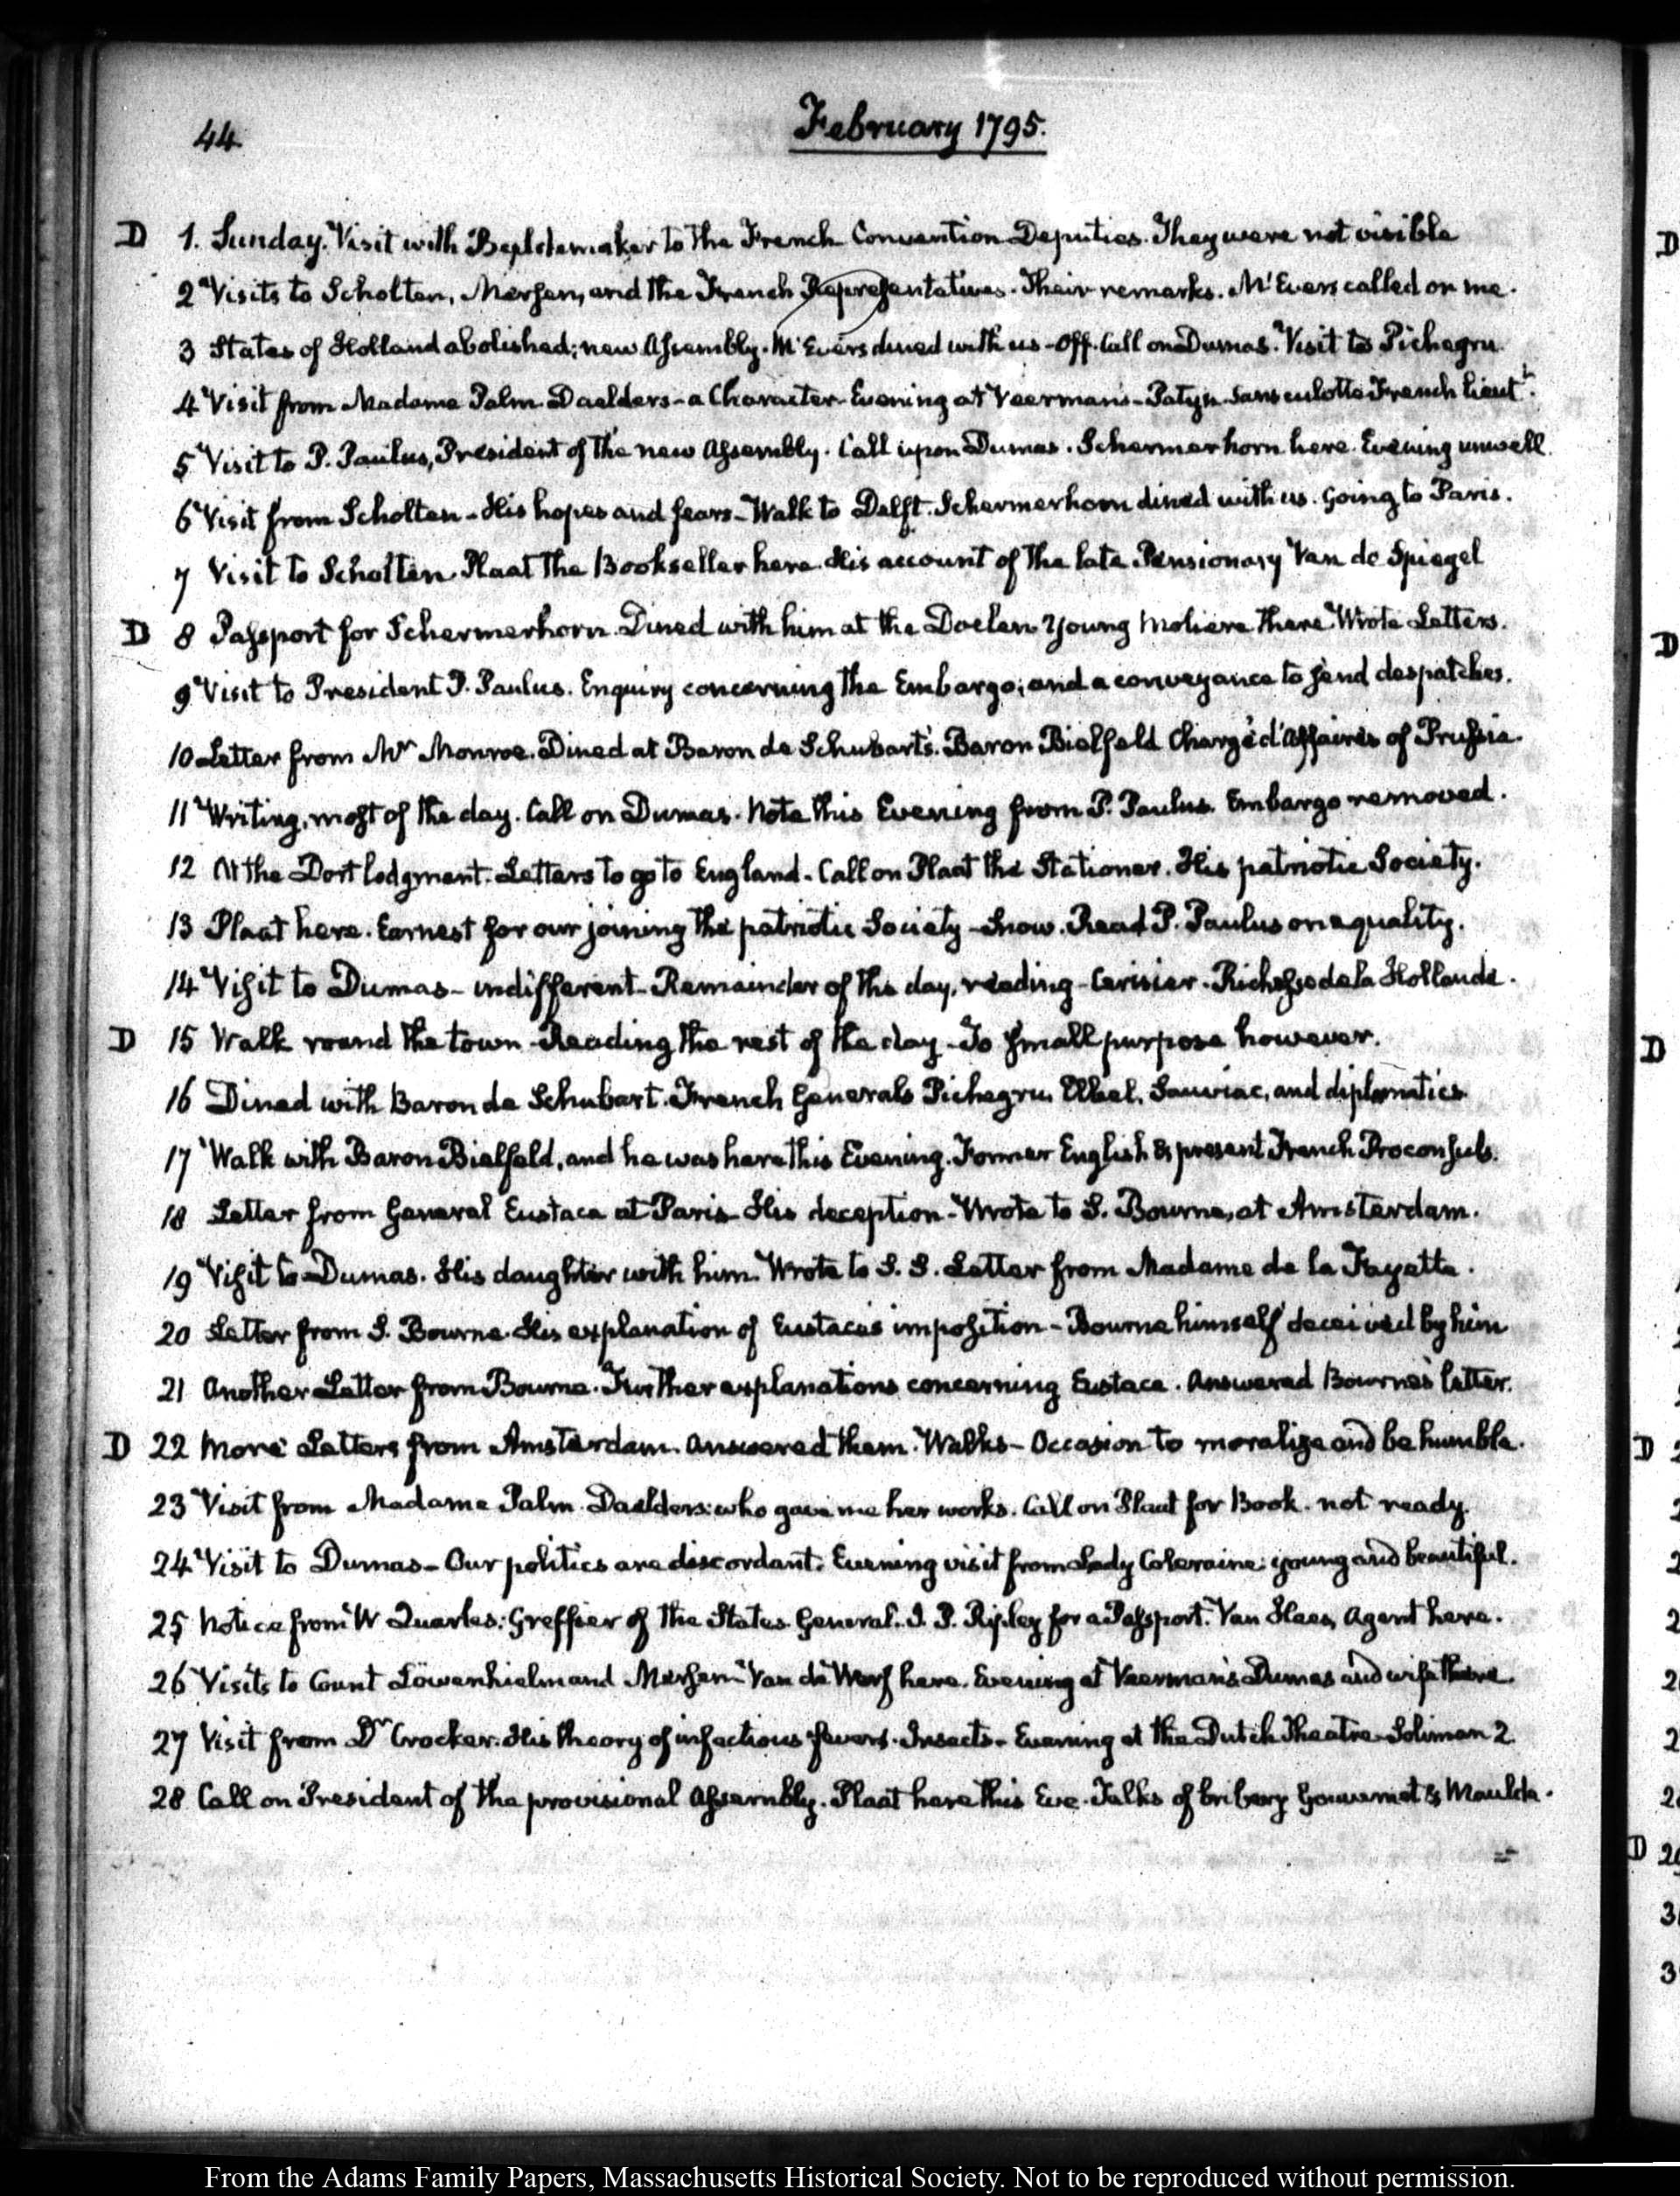 44
February 1795.
D 1. Sunday. Visit with Beeldemaker to the French Convention Deputies. They were not visible
2 Visits to Scholten, Mersen, and the French Representatives. Their remarks. McEvers called on me.
3 States of Holland abolished; new Assembly. McEvers dined with us - Off. Call on Dumas. Visit to Pichegru.
4 Visit from Madame Palm Daelders - a Character - Evening at Veerman's - Patyn Sans culotte French Lieut.t
5 Visit to P. Paulus, President of the new Assembly. Call upon Dumas. Schermerhorn here. Evening unwell.
6 Visit from Scholten - His hopes and fears - Walk to Delft. Schermerhorn dined with us. Going to Paris.
7 Visit to Scholten. Plaat the Bookseller here. His account of the late Pensionary Van de Spiegel
D 8 Passport for Schermerhorn. Dined with him at the Doelen. Young Moliere there. Wrote Letters.
9 Visit to President P. Paulus. Enquiry concerning the Embargo; and a conveyance to send despatches.
10 Letter from Mr Monroe. Dined at Baron de Schubart's. Baron Bielfeld Chargé d'Affaires of Prussia.
11 Writing, most of the day. Call on Dumas. Note this Evening from P. Paulus. Embargo removed.
12 At the Dort lodgment. Letters to go to England. Call on Plaat the Stationer. His patriotic Society.
13 Plaat here. Earnest for our joining the patriotic Society - Snow. Read P. Paulus on equality.
14 Visit to Dumas - indifferent - Remainder of the day, reading - Cerisier. Richesse de la Hollande.
D 15 Walk round the town - Reading the rest of the day - To small purpose however.
16 Dined with Baron de Schubart. French Generals Pichegru, Elbel, Sauviac, and diplomatics
17 Walk with Baron Bielfeld, and he was here this Evening. Former English & present French Proconsuls.
18 Letter from General Eustace at Paris - His deception - Wrote to S. Bourne, at Amsterdam.
19 Visit to Dumas. His daughter with him. Wrote to S. S. Letter from Madame de la Fayette.
20 Letter from S. Bourne. His explanation of Eustace's imposition - Bourne himself deceived by him
21 Another Letter from Bourne. Further explanations concerning Eustace. Answered Bourne's letter.
D 22 More Letters from Amsterdam. Answered them. Walks - Occasion to moralize and be humble.
23 Visit from Madame Palm Daelders: who gave me her works. Call on Plaat for Book. not ready.
24 Visit to Dumas - Our politics are discordant. Evening visit from Lady Coleraine: young and beautiful.
25 Notice from W Quarles: Greffier of the States General. I. P. Ripley for a Passport. Van Haes, Agent here.
26 Visits to Count Löwenhielm and Mersen. Van de Werf here. Evening at Veerman's Dumas and wife there.
27 Visit from Dr Crocker. His theory of infectious fevers. Insects - Evening at the Dutch Theatre Soliman 2.
28 Call on President of the provisional Assembly. Plaat here this Eve. Talks of bribery Gouvernet & Maulde.
From the Adams Family Papers, Massachusetts Historical Society. Not to be reproduced without permission.